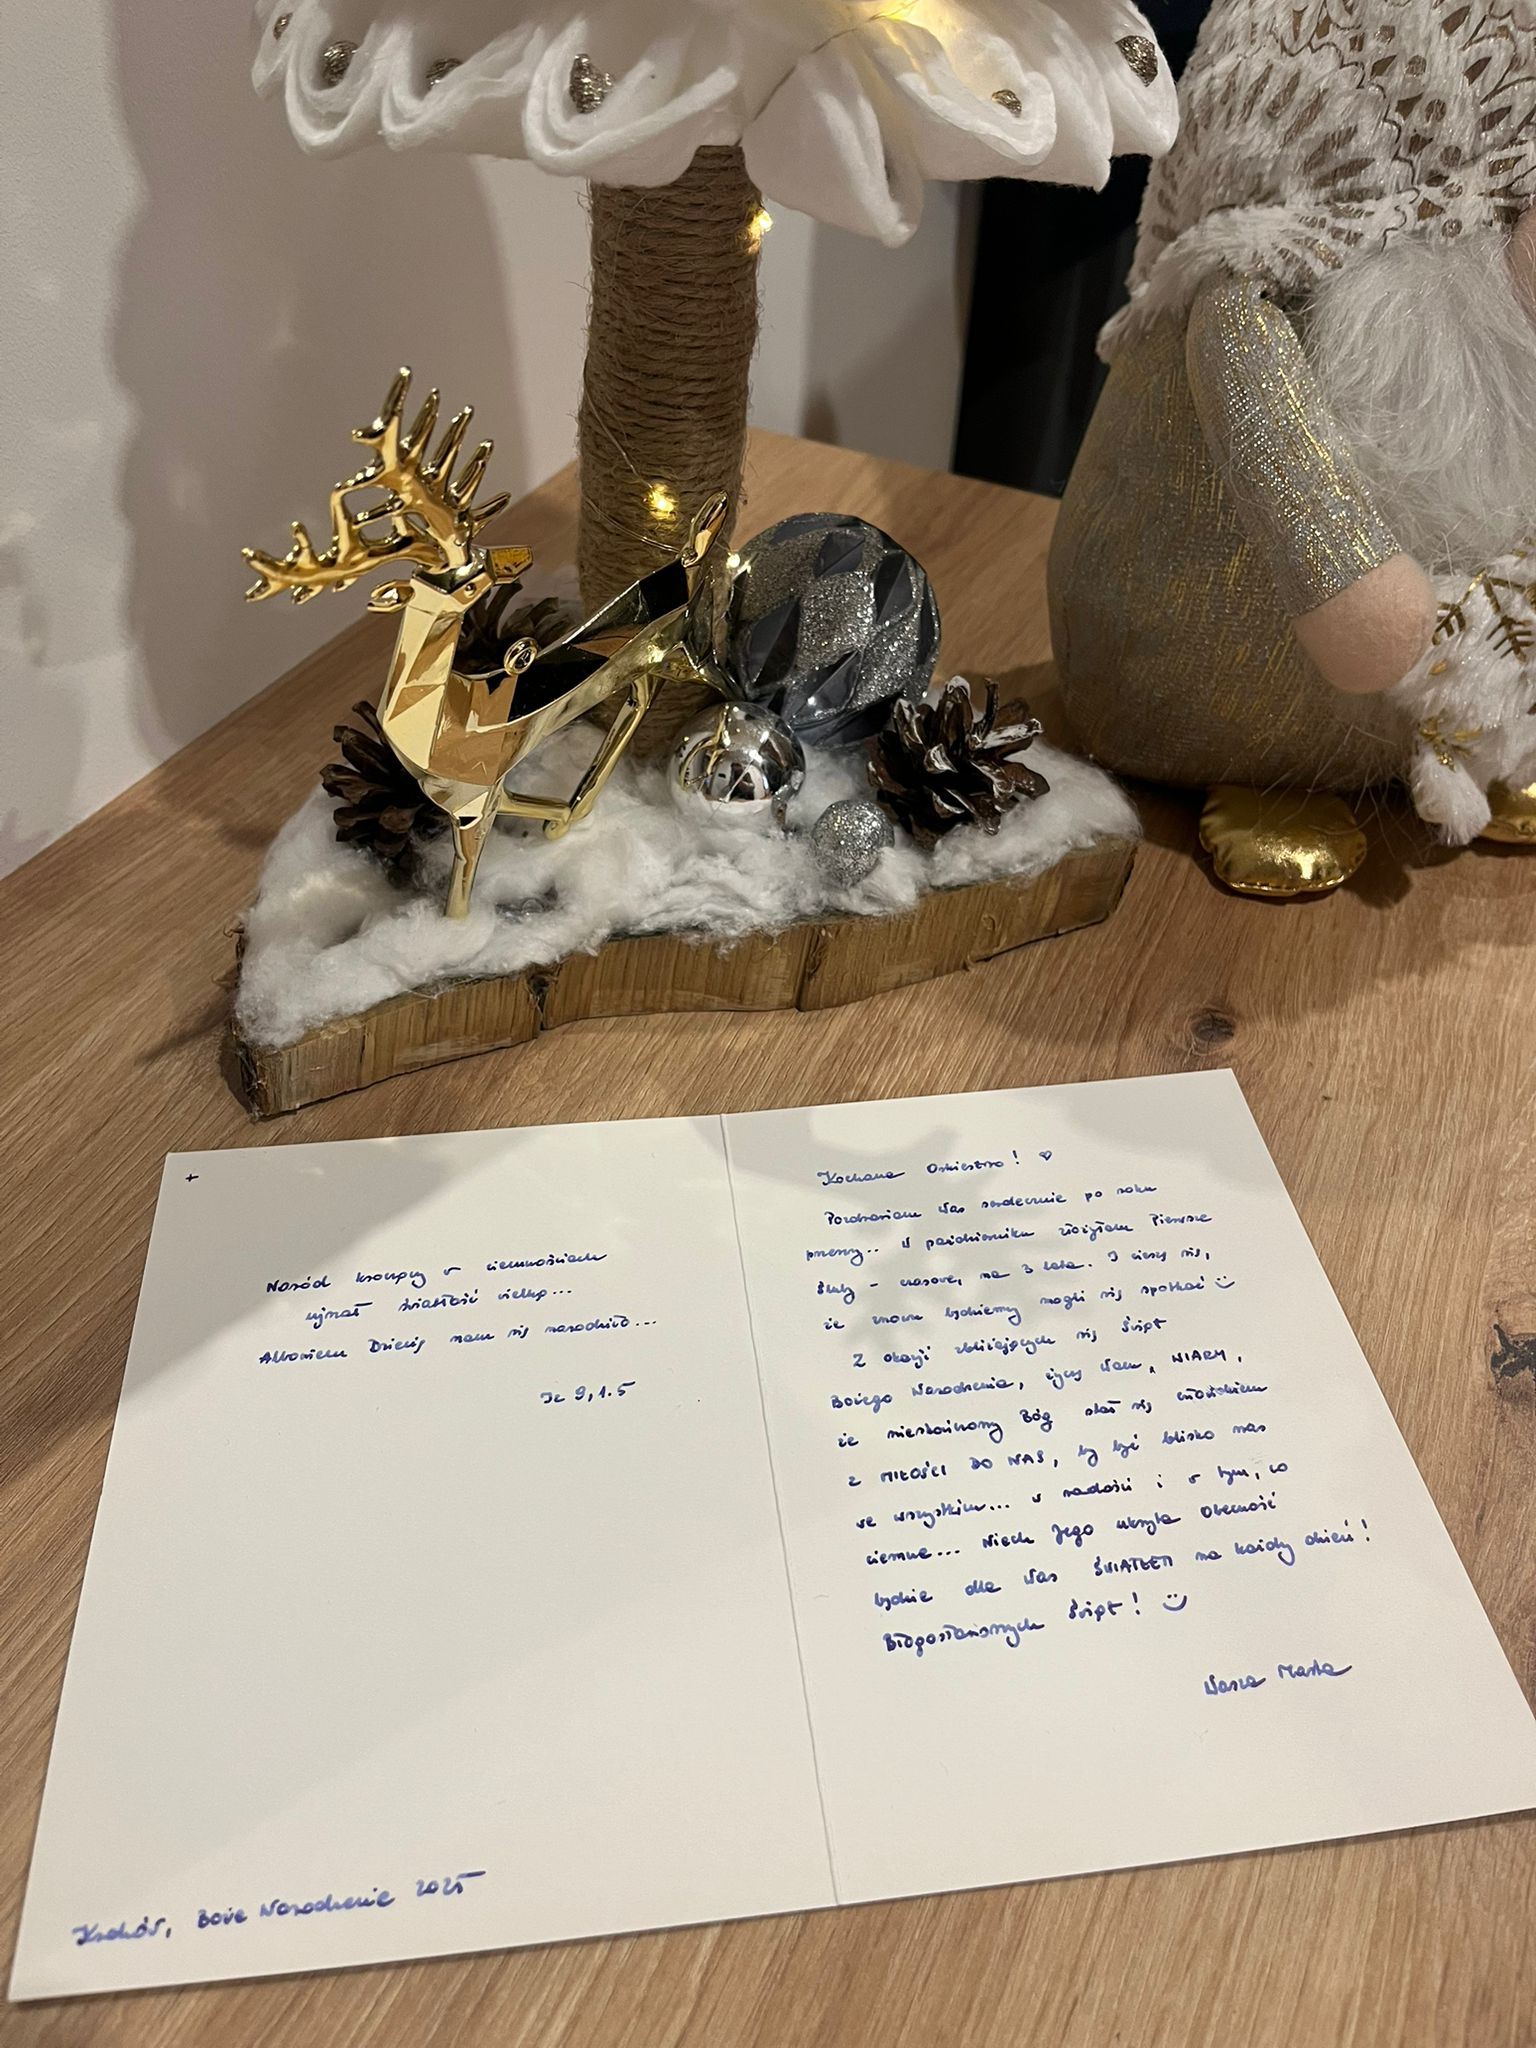 +
Naród kroczący w ciemnościach
ujrzał światłość wielką...
Albowiem Dziecię nam się narodziło...
Iz 9,1.5
Kraków, Boże Narodzenie 2025
Kochana Orkiestro! ♡
Pozdrawiam Was serdecznie po roku
przerwy.. W październiku złożyłam Pierwsze
Śluby - czasowe, na 3 lata. I cieszę się,
że znowu będziemy mogli się spotkać :)
Z okazji zbliżających się Świąt
Bożego Narodzenia, życzę Wam, WIARY,
że nieskończony Bóg stał się człowiekiem
z MIŁOŚCI DO NAS, by być blisko nas
we wszystkim... w radości i w tym, co
ciemne... Niech Jego ukryta Obecność
będzie dla Was ŚWIATŁEM na każdy dzień!
Błogosławionych Świąt! :)
Wasza Marta